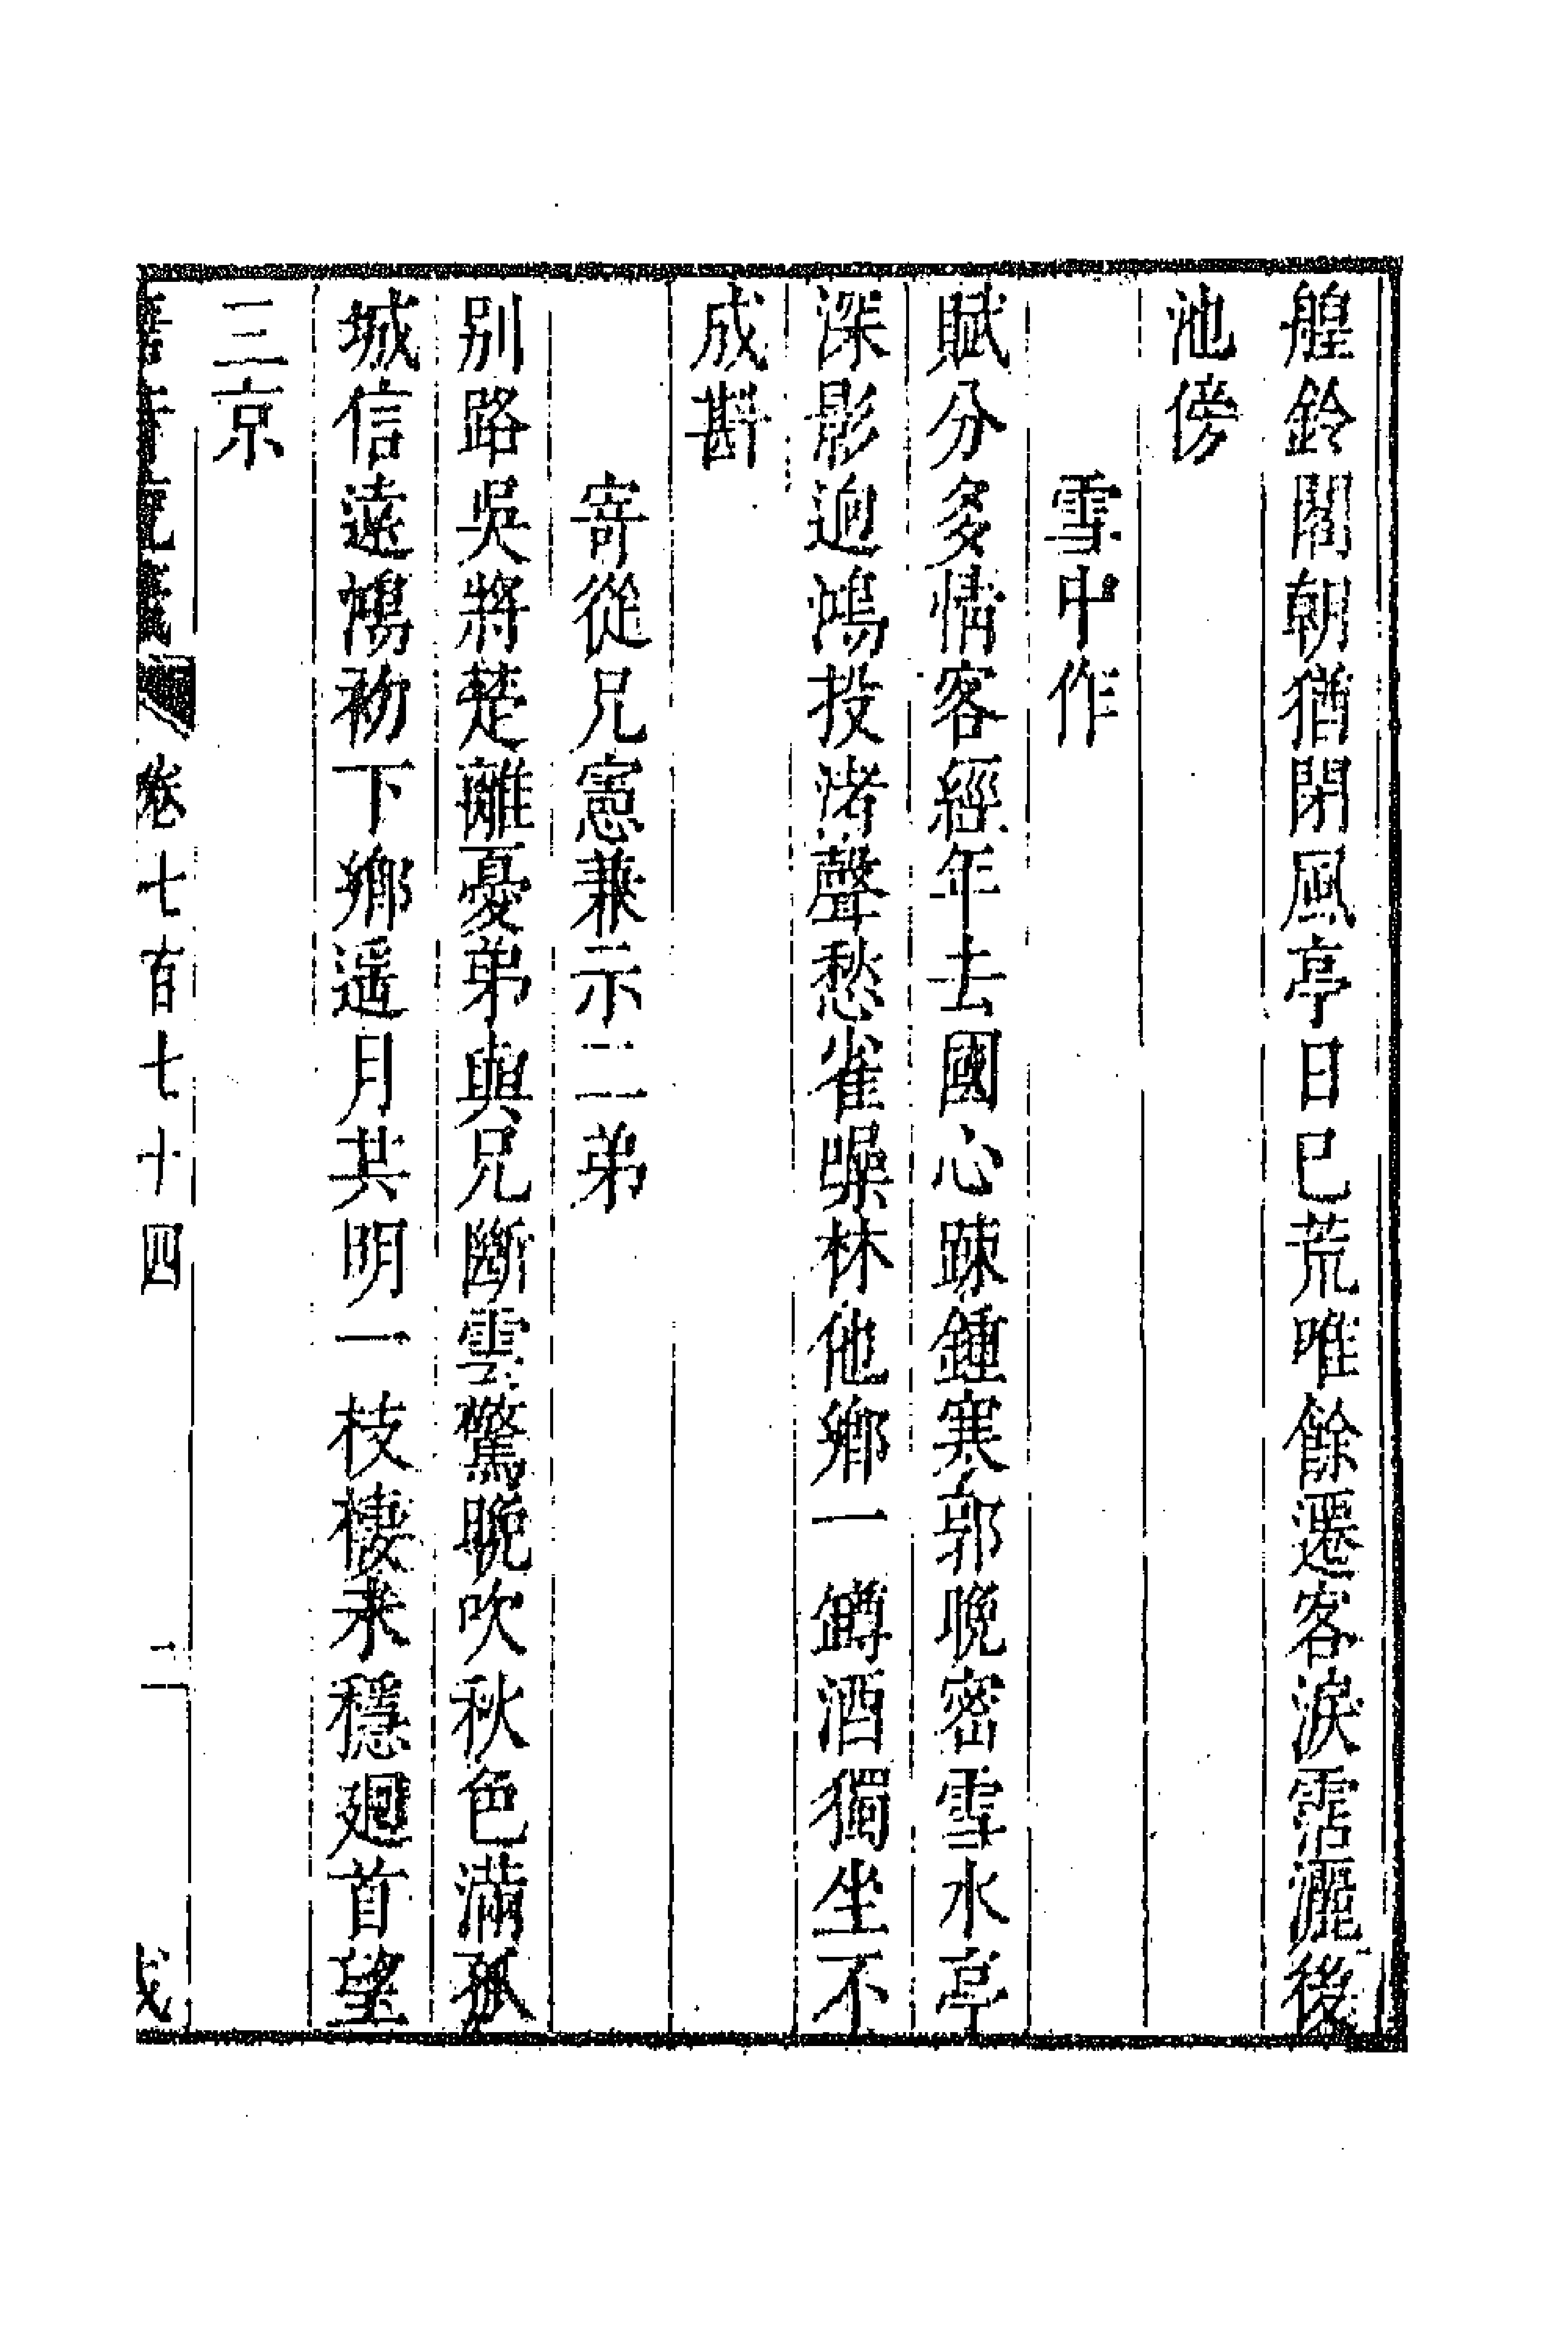 艎鈴閣朝猶閉風亭日已荒唯餘遷客淚霑灑後
池傍
雪中作
賦分多情客經年去國心踈鍾寒郭晚密雪水亭
深影迥鴻投渚聲愁雀噪林他鄉一罇酒獨坐不
成斟
寄從兄憲兼示二弟
別路吳將楚離憂弟與兄斷雲驚晚吹秋色滿孤
城信遠鴻初下鄉遥月共明一枝棲未穩廻首望
三京
卷七百七十四
二